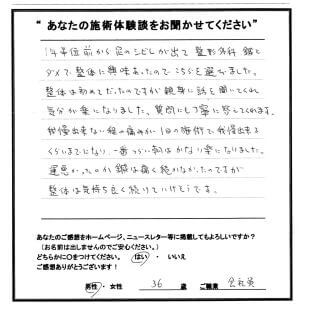 “ あなたの施術体験談をお聞かせください”
1年半位前から足のシビレが出て 整形外科 鍼と
ダメで整体に興味あったのでこちらを選びました。
整体は初めてだったのですが親身に話を聞いてくれ
気分が楽になりました。質問にも丁寧に答してくれます。
我慢出来ない程の痛みが1回の施術で我慢出来る
くらいまでになり 一番つらい朝はかなり楽になりました。
運悪かったのか鍼は痛く続かなかったのですが
整体は気持ち良く続けていけそうです。
あなたのご感想をホームページ、ニュースレター等に掲載してもよろしいですか？
（お名前は出しませんのでご安心ください。）
どちらかに○をつけてください。 はい ・ いいえ
ご感想ありがとうございます！
男性 ・ 女性 36 歳 ご職業 会社員